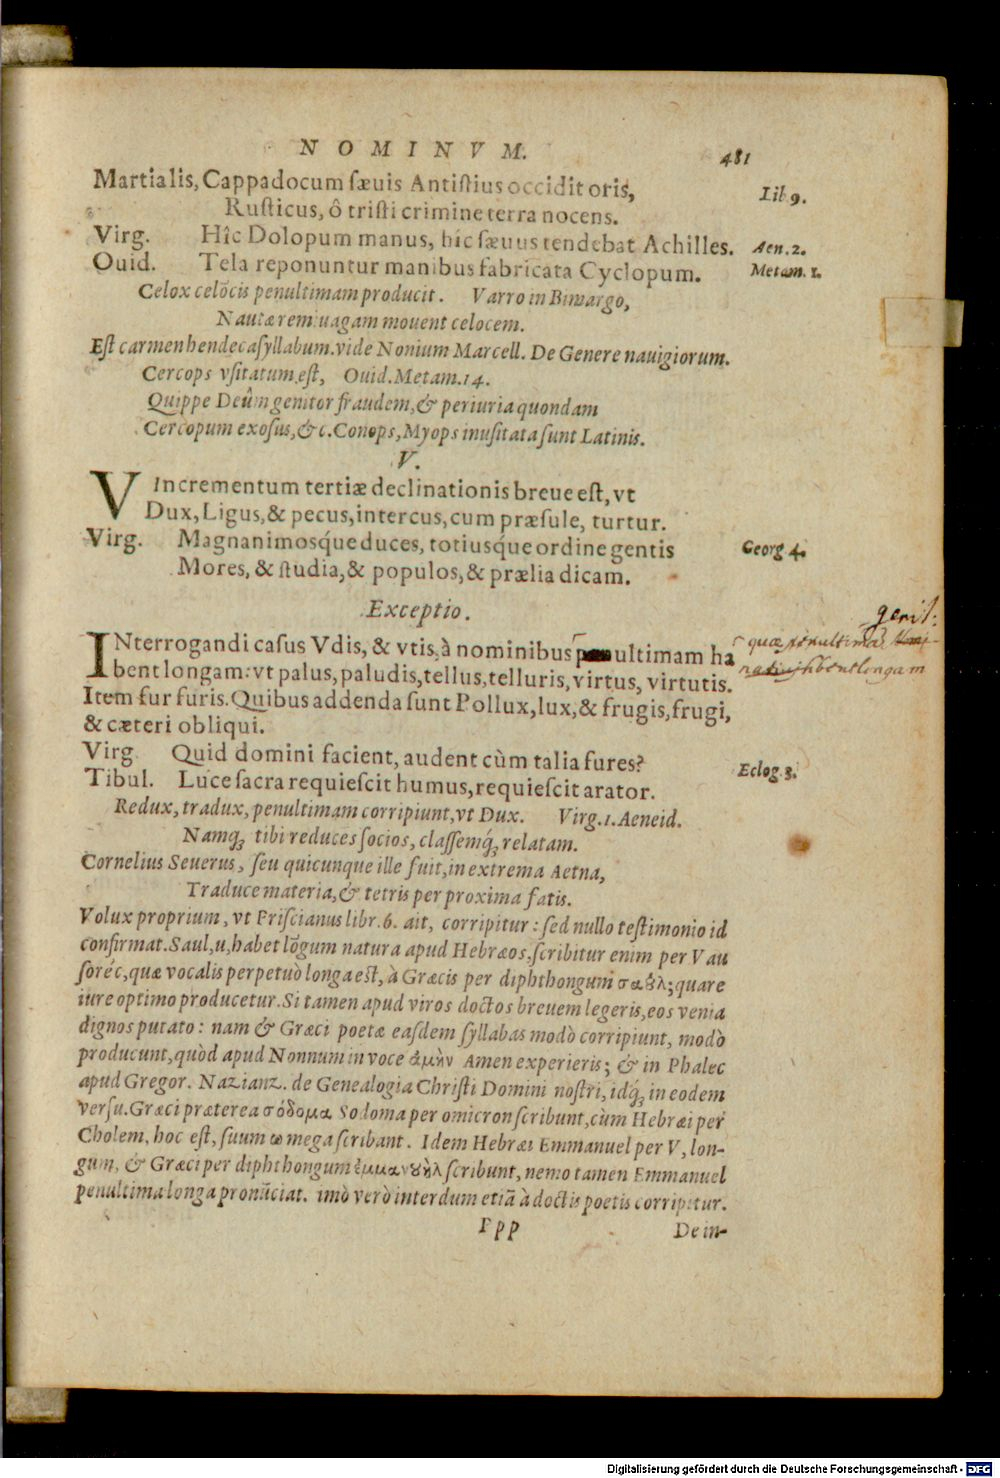 NOMINVM. 481
Martialis, Cappadocum sæuis Antistius occidit oris, Lib 9.
Rusticus, ô tristi crimine terra nocens.
Virg. Hîc Dolopum manus, hîc sæuus tendebat Achilles. Aen. 2.
Ouid. Tela reponuntur manibus fabricata Cyclopum. Metam. 1.
Celox celōcis penultimam producit. Varro in Bimargo,
Nautæ remiuagam mouent celocem.
Est carmen hendecasyllabum. vide Nonium Marcell. De Genere nauigiorum.
Cercops vsitatum est, Ouid. Metam. 14.
Quippe Deûm genitor fraudem, & periuria quondam
Cercopum exosus, &c. Conops, Myops inusitata sunt Latinis.
V.
V Increrementum tertiæ declinationis breue est, vt
Dux, Ligus, & pecus, intercus, cum præsule, turtur.
Virg. Magnanimosq́ue duces, totiusq́ue ordine gentis Georg 4.
Mores, & studia, & populos, & prælia dicam.
Exceptio.
INterrogandi casus Vdis, & vtis, à nominibus penultimam ha
bent longam: vt palus, paludis, tellus, telluris, virtus, virtutis.
genit:
quæ penultimā
habent longam
Item fur furis. Quibus addenda sunt Pollux, lux, & frugis, frugi,
& cæteri obliqui.
Virg. Quid domini facient, audent cùm talia fures? Eclog. 3.
Tibul. Luce sacra requiescit humus, requiescit arator.
Redux, tradux, penultimam corripiunt, vt Dux. Virg. 1. Aeneid.
Namq́; tibi reduces socios, classemq́; relatam.
Cornelius Seuerus, seu quicunque ille fuit, in extrema Aetna,
Traduce materia, & tetris per proxima fatis.
Volux proprium, vt Priscianus libr. 6. ait, corripitur: sed nullo testimonio id
confirmat. Saul, u, habet lōgum natura apud Hebræos, scribitur enim per Vau
soréc, quæ vocalis perpetuò longa est, à Græcis per diphthongum σαȣλ; quare
iure optimo producetur. Si tamen apud viros doctos breuem legeris, eos venia
dignos putato: nam & Græci poetæ easdem syllabas modò corripiunt, modò
producunt, quòd apud Nonnum in voce ἀμὴν Amen experieris; & in Phalec
apud Gregor. Nazianz. de Genealogia Christi Domini nostri, idq́; in eodem
versu. Græci præterea σόδομα Sodoma per omicron scribunt, cùm Hebræi per
Cholem, hoc est, suum ω mega scribant. Idem Hebræi Emmanuel per V, lon-
gum, & Græci per diphthongum ἐμμανȣὴλ scribunt, nemo tamen Emmanuel
penultima longa pronūciat. imò verò interdum etiā à doctis poetis corripitur.
Ppp De in-
Digitalisierung gefördert durch die Deutsche Forschungsgemeinschaft - DFG